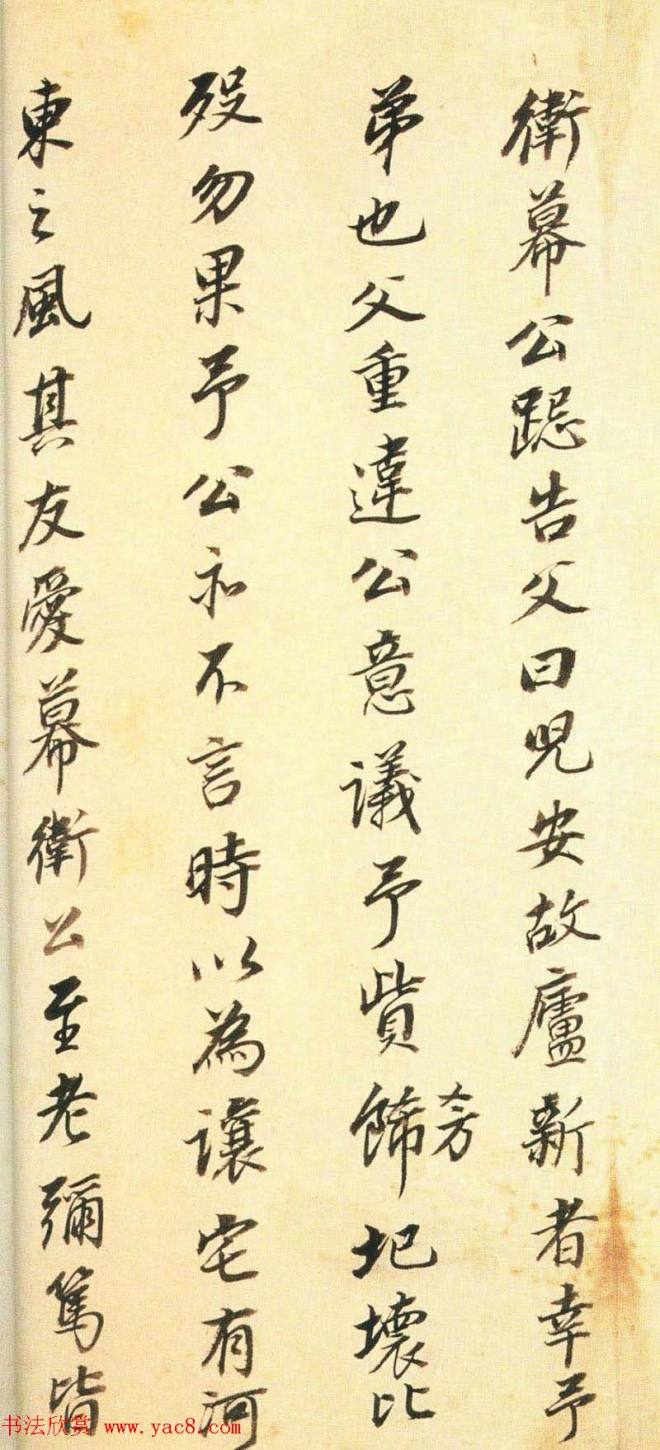 衛幕公跽告父曰兒安故廬新者幸予
弟也父重違公意議予貲飾圮壞比
分
歿勿果予公亦不言時以為讓宅有河
東之風其友愛幕衛公至老彌篤皆
书法欣赏 www.yac8.com